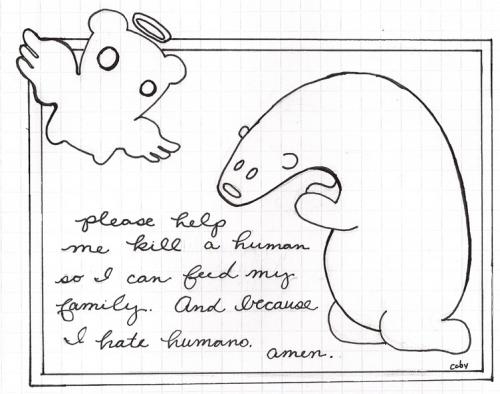 please help
me kill a human
so I can feed my
family. And because
I hate humans.
amen.
coby